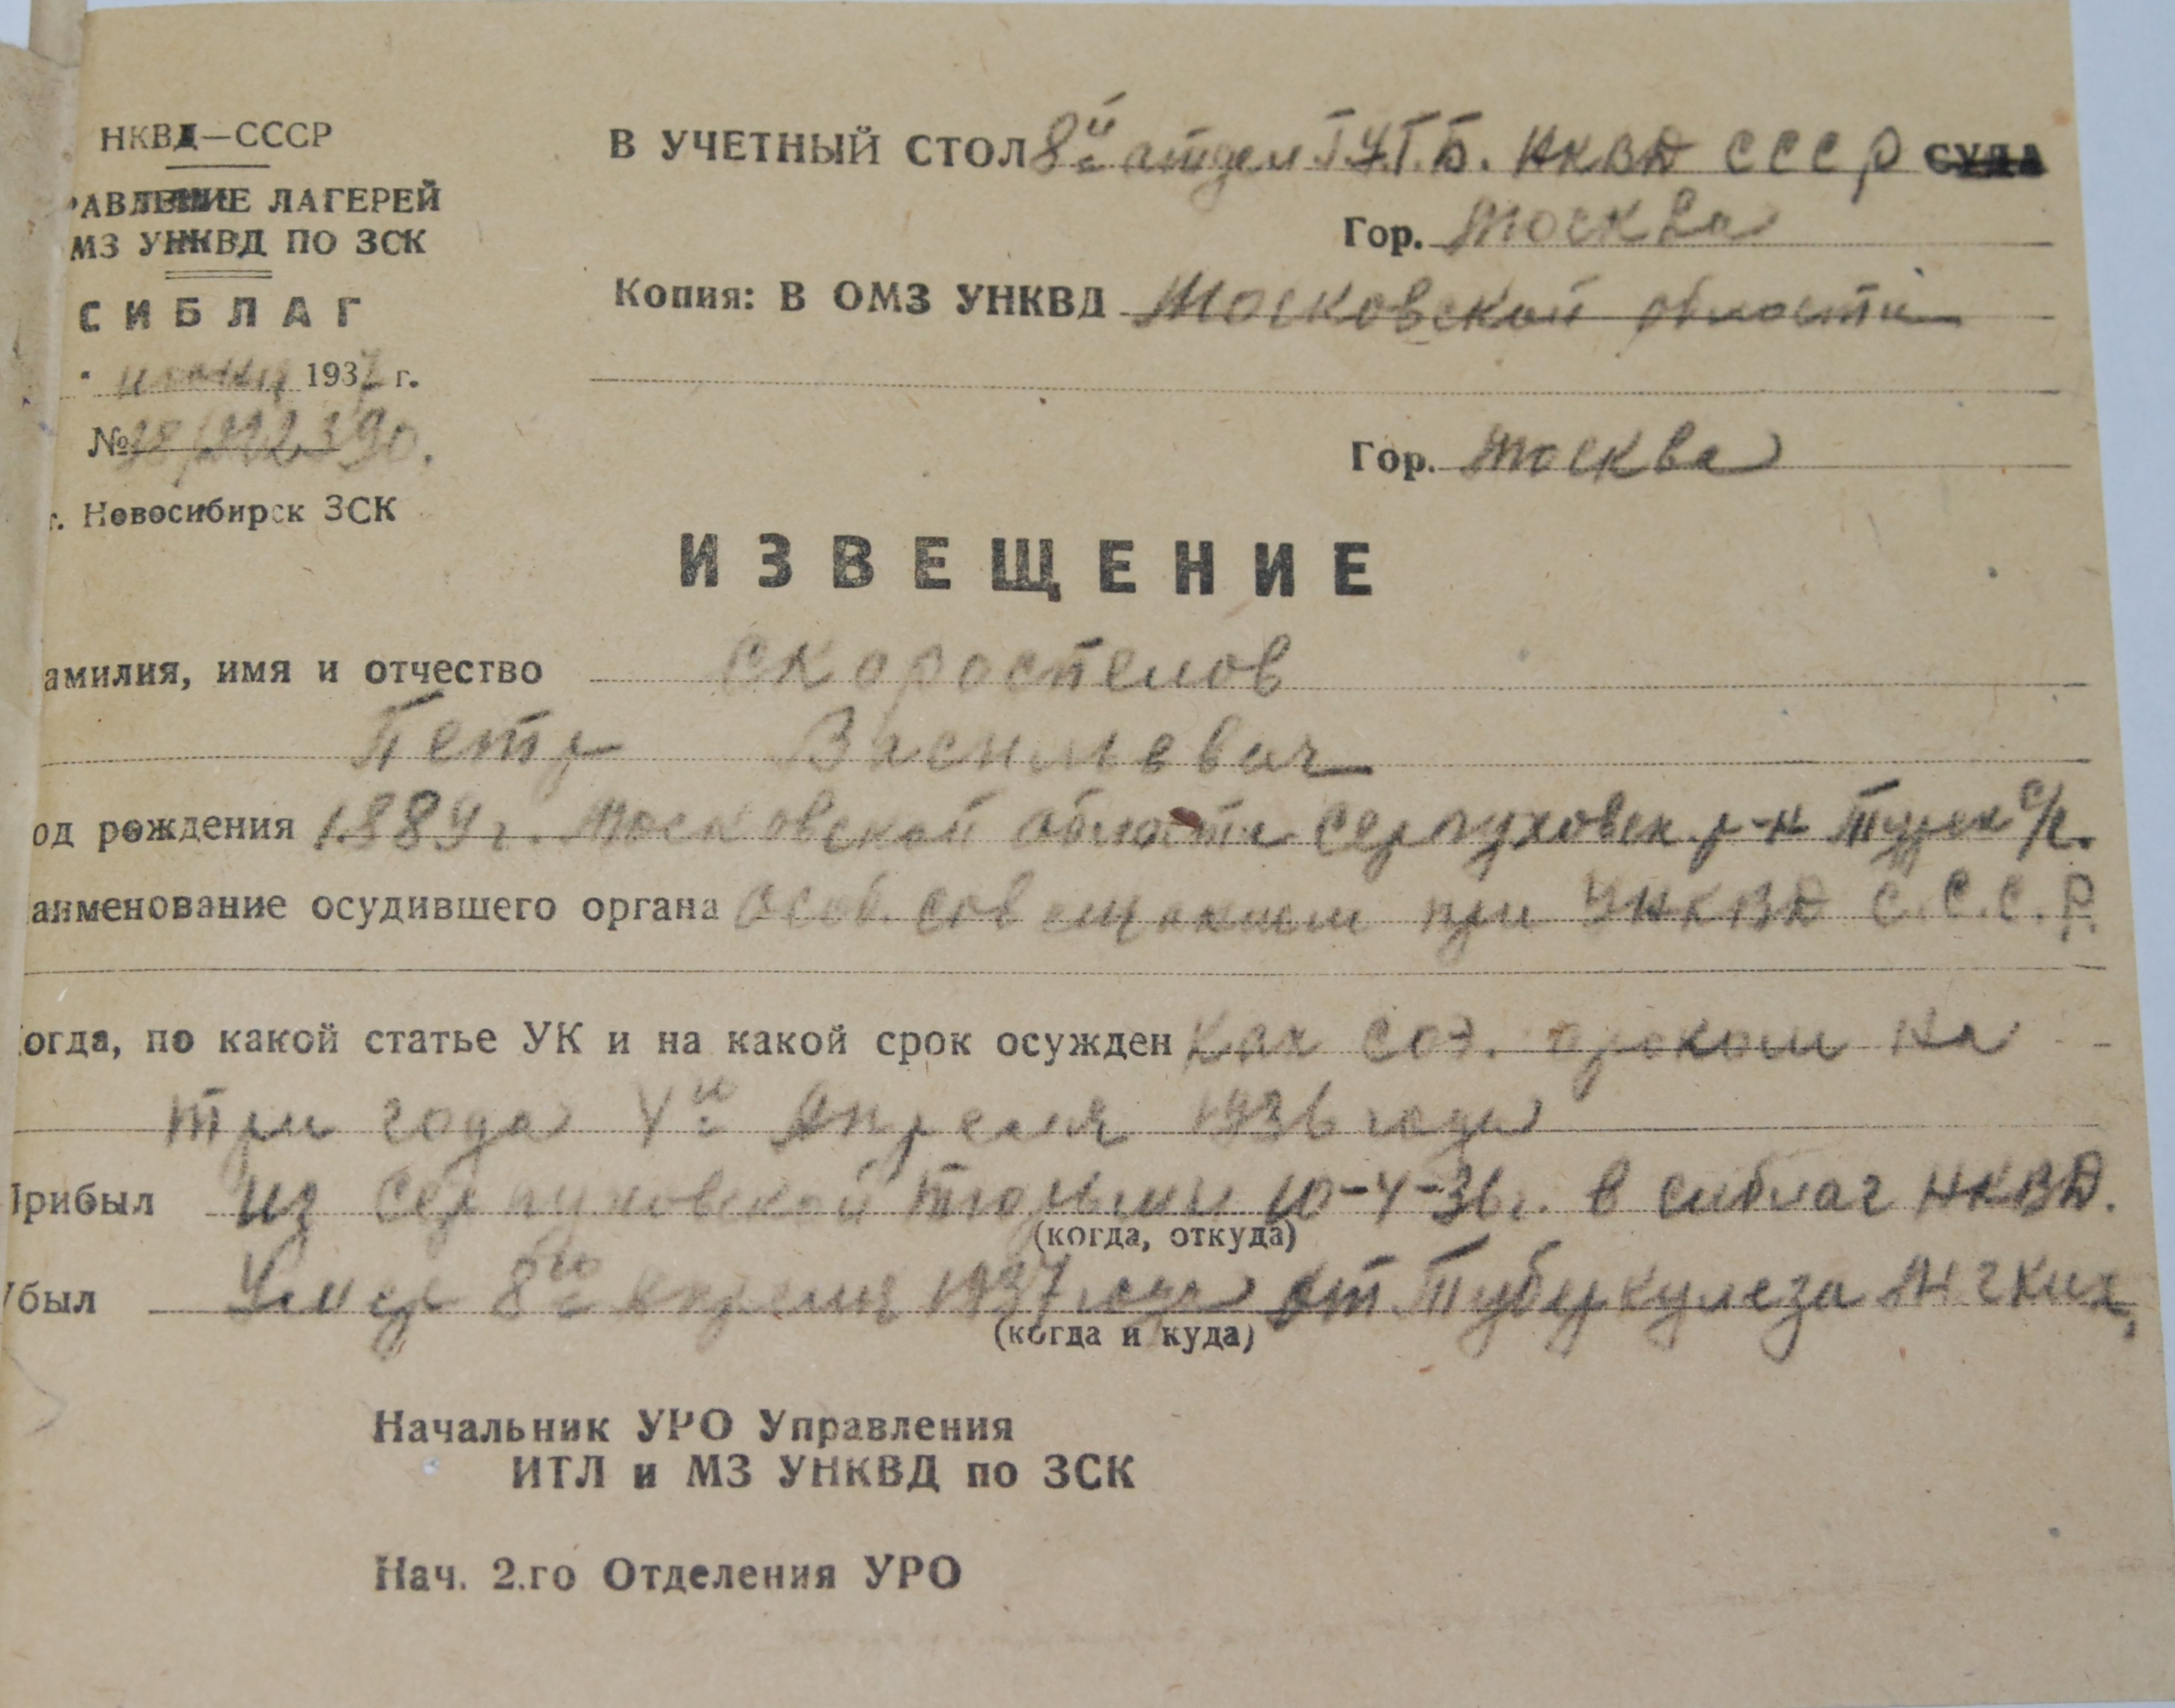 НКВД—СССР
РАВЛЕНИЕ ЛАГЕРЕЙ
МЗ УНКВД ПО ЗСК
СИБЛАГ
1937 г.
№
г. Новосибирск ЗСК
В УЧЕТНЫЙ СТОЛ 8й отдел Г.У.Г.Б. НКВД СССР суда
Гор. Москва
Копия: В ОМЗ УНКВД Московской области
Гор. Москва
ИЗВЕЩЕНИЕ
амилия, имя и отчество Скороспелов
Петр Васильевич
од рождения 1889 г. Московской области Серпуховск. р-н с/с.
аименование осудившего органа Особ. совещанием при УНКВД С.С.С.Р.
огда, по какой статье УК и на какой срок осужден Как соэ. на
три года 4й Апреля 1936 года
Прибыл из Серпуховской тюрьмы 10-4-36 г. в сиблаг НКВД.
(когда, откуда)
Убыл Умер 8го апреля 1937 года от Туберкулеза
(когда и куда)
Начальник УРО Управления
ИТЛ и МЗ УНКВД по ЗСК
Нач. 2.го Отделения УРО